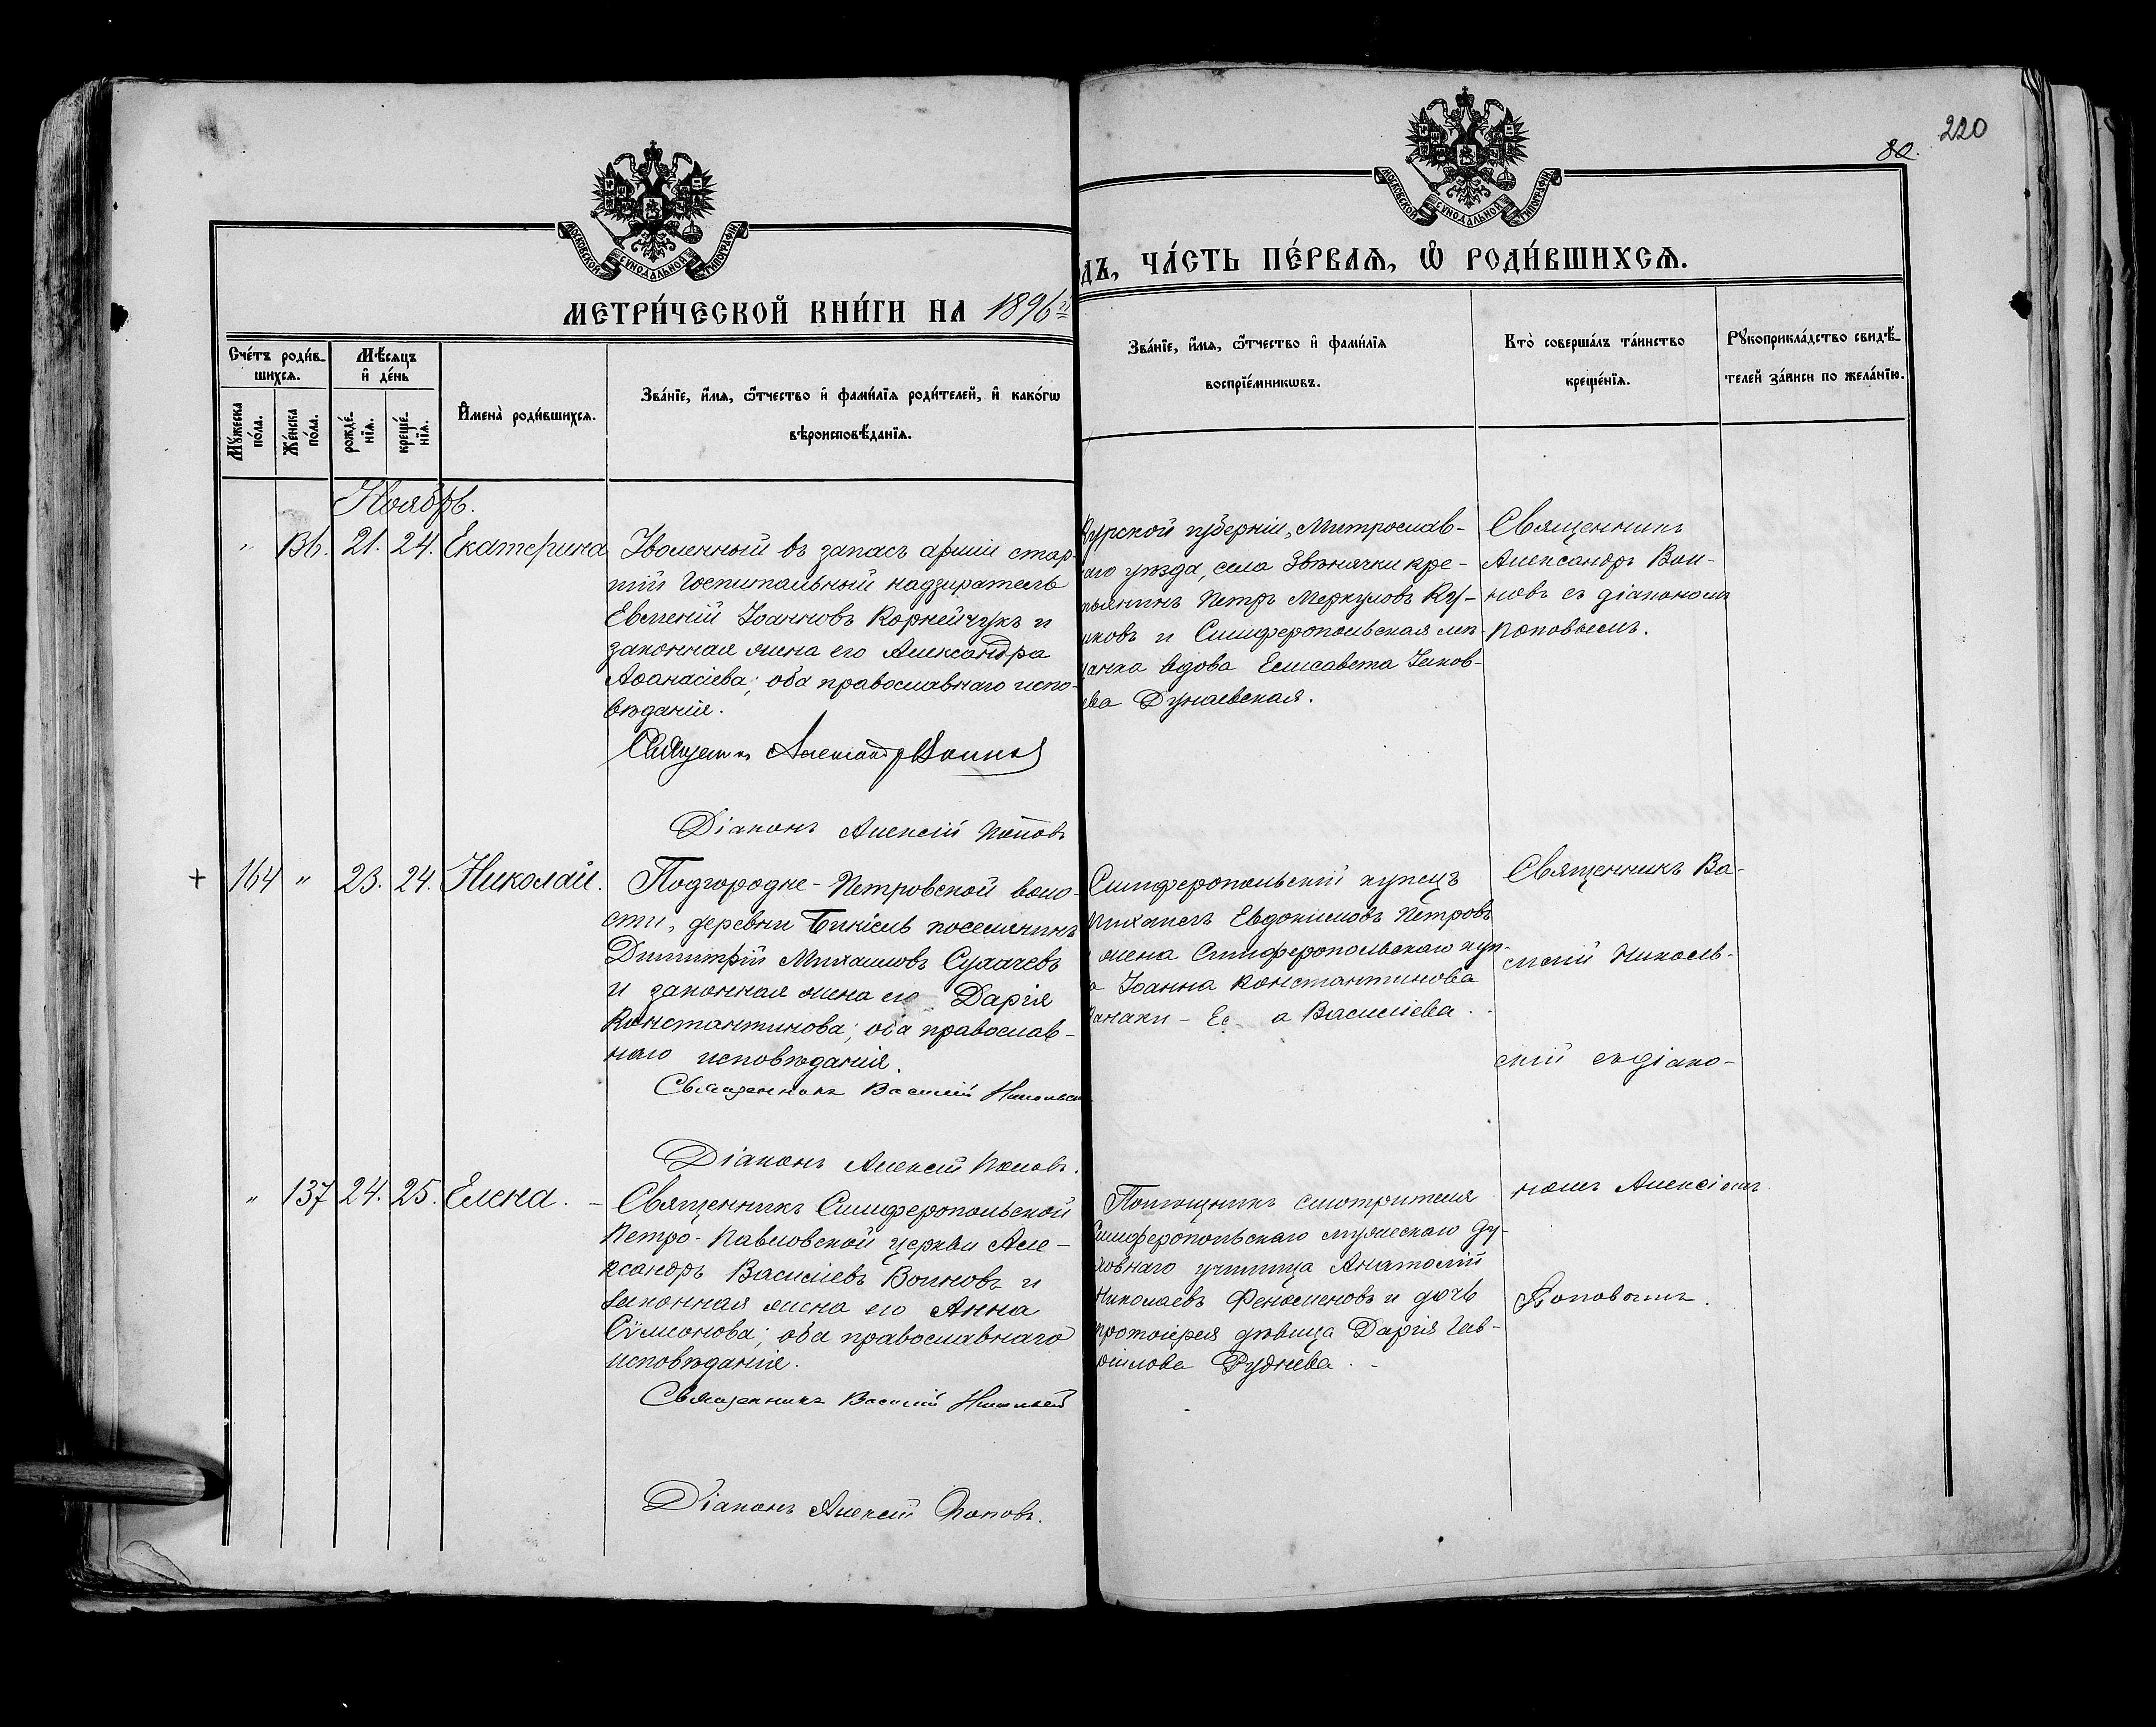 220
80.
МОСКОВСКОЙ СУНОДАЛЬНОЙ ТИПОГРАФІИ
МОСКОВСКОЙ СУНОДАЛЬНОЙ ТИПОГРАФІИ
МЕТРИ́ЧЕСКОЙ КНИ́ГИ НА 1896й
ДЪ, ЧА́СТЬ ПЕ́РВАѦ, Ѡ҆ РОДИ́ВШИХСѦ.
Сче́тъ роди́в-
шихсѧ.
Мꙋ́жеска по́ла.
Же́нска по́ла.
Мѣ́сѧцъ
и҆ де́нь
рожде́-нїѧ.
креще́-нїѧ.
И҆мена̀ роди́вшихсѧ.
Зва́нїе, и҆́мѧ, ѻ҆́тчество и҆ фами́лїѧ роди́телей, и҆ како́гѡ
вѣроисповѣ́данїѧ.
Зва́нїе, и҆́мѧ, ѻ҆́тчество и҆ фами́лїѧ
воспрїе́мникѡвъ.
Кто̀ соверша́лъ та́инство
креще́нїѧ.
Рꙋкоприкла́дство свидѣ́-
телей за́писи по жела́нїю.
Ноябрь.
" 136. 21. 24. Екатерина
Уволенный въ запасъ арміи стар-
шій госпитальный надзиратель
Евгеній Іоанновъ Корнейчукъ и
законная жена его Александра
Аѳанасіева; оба православнаго испо-
вѣданія.
Священникъ Александръ Воиновъ
Діаконъ Алексій Поповъ
Курской губерніи,
аго уѣзда, села Звѣнячки кре-
стьянинъ Петръ Меркуловъ Ку-
иковъ и Симферопольская мѣ-
щанка вдова Елисавета Іаков-
ева Дунаевская.
Священникъ
Александръ Вои-
новъ съ діакономъ
Поповымъ.
+ 164 " 23. 24. Николай.
Подгородне-Петровской воло-
сти, деревни посѣлянинъ
Димитрій Михаиловъ Судачевъ
и законная жена его Дарія
Константинова; оба православ-
наго исповѣданія.
Священникъ Василій Никольскій
Діаконъ Алексій Поповъ.
Симферопольскій купецъ
Михаилъ Евдокимовъ Петровъ
жена Симферопольскаго куп-
а Іоанна Константинова
анаки - Ес а Василіева.
Священникъ Ва-
силій Николь-
скій съ діако-
" 137 24. 25. Елена. -
Священникъ Симферопольской
Петро-Павловской церкви Але-
ксандръ Василіевъ Воиновъ и
законная жена его Анна
Сѵмеонова; оба православнаго
исповѣданія.
Священникъ Василій Никольскій
Діаконъ Алексій Поповъ.
Помощникъ смотрителя
Симферопольскаго мужескаго ду-
ховнаго училища Анатолій
Николаевъ Феноменовъ и дочь
протоіерея дѣвица Дарія Гав-
риилова Руднева.
номъ Алексіемъ
Поповымъ.